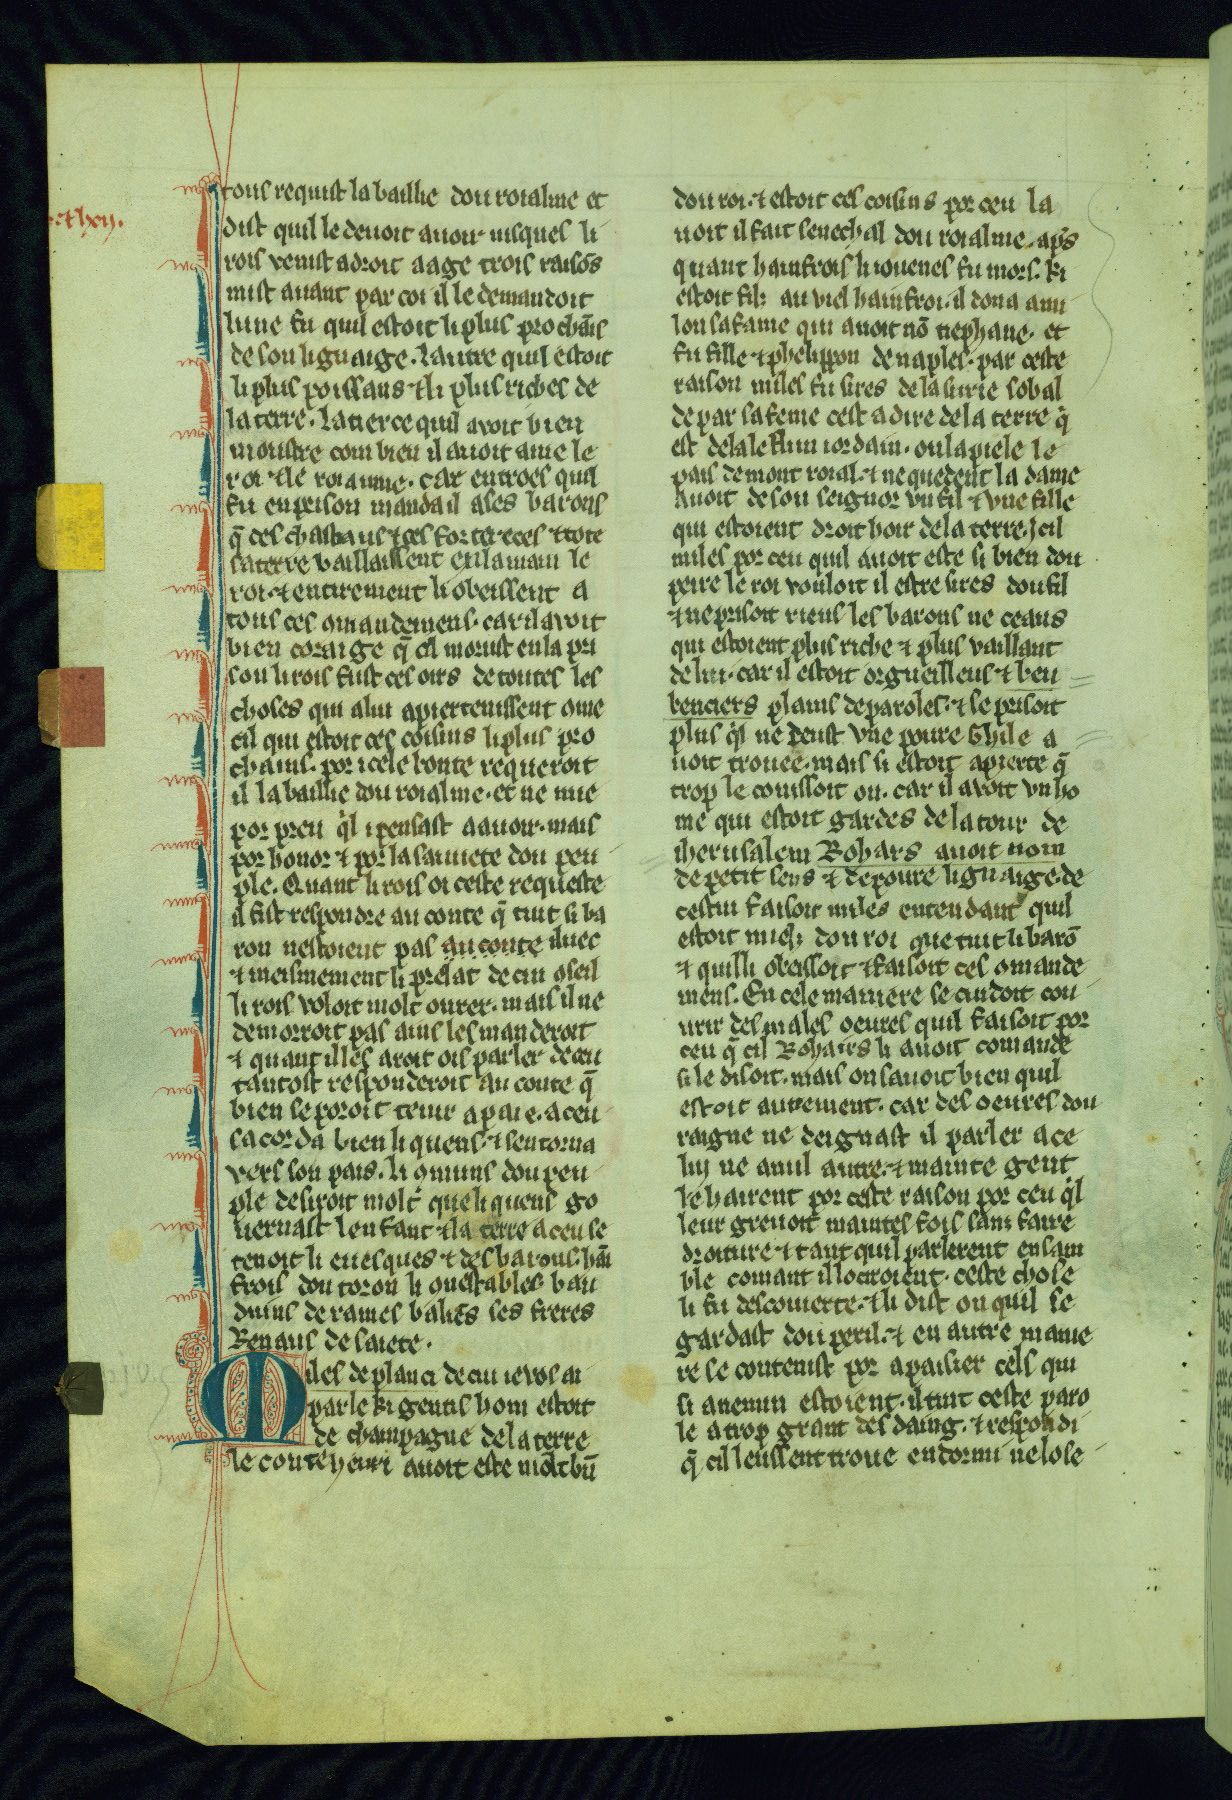 tous requist la baillie dou roialme et
dist quil le deuoit auoir iusques li
rois venist a droit aage trois raisōs
mist auant par coi il le demandoit
lune fu quil estoit li plus prochāis
de son lignaige. Lautre quil estoit
li plus poissans ⁊ li plus riches de
la terre. La tierce quil avoit bien
moustre com bien il auoit ame le
roi ⁊ le roiaume. car entroes quil
fu en prison manda il a ses barons
q̄ ces chastiaus ⁊ ces fortereces ⁊ tote
sa terre baillaissent en la main le
roi. ⁊ entirement li obeissent a
tous ces cōmandemens. car il avoit
bien coraige q̄ cil morust en la pri
son li rois fust ces oirs de toutes les
choses qui a lui apiertenissent ome
cil qui estoit ces coisins li plus pro
chains. por icele bonte requeroit
il la baillie dou roialme. et ne mie
por preu q̇l i pensast a auoir. mais
por honor ⁊ por la sauuete dou peu
ple. Quant li rois oi ceste requeste
il fist respondre au conte q̄ tuit si ba
ron nestoient pas au conte iluec
⁊ meismement li prelat de cui ꝯseil
li rois voloit molt ourer. mais il ne
demorroit pas ains les manderoit
⁊ quant il les aroit ois parler de ceu
tantost responderoit au conte q̄
bien se poroit tenir a paie. a ceu
sacorda bien li quens. ⁊ sen torna
vers son pais. li ꝯmuns dou peu
ple desiroit molt que li quens go
uernast lenfant ⁊ la terre a ceu se
tenoit li euesques ⁊ des barons. hāi
frois dou toron li ꝯnestables. bau
duins de rames balies ses freres
Renaus de saiete.
Miles de planci de cui ie vos ai
parle ki gentis hom estoit
de champagne de la terre
le conte henri auoit este molt bn̄
dou roi. ⁊ estoit ces coisins por ceu la
uoit il fait senechal dou roialme. ap̄s
quant hainfrois li iouenes fu mors. ki
estoit filz au viel hainfroi. il dona a mi
lon sa fame qui auoit nō tiephane. et
fu fille ⁊ phelippon de naples. par ceste
raison miles fu sires de la surie sobal
de par sa feme cest a dire de la terre q̇
est dela le flun iordain. on lapiele le
pais de mont roial. ⁊ nequedent la dame
auoit de son seignor vn fil ⁊ vne fille
qui estoient droit hoir de la terre. cil
miles por ceu quil auoit este si bien dou
peire le roi vouloit il estre sires dou fil
⁊ ne prisoit riens les barons ne ceaus
qui estoient plus riche ⁊ plus vaillant
de lui. car il estoit orguelleus ⁊ beu
benciers plains de paroles. ⁊ se prisoit
plus q̇l ne deust vne poure Ghile a
uoit trouee. mais si estoit apierte q̄
trop le conissoit on. car il avoit vn ho
me qui estoit gardes de la tour de
iherusalem Rohars auoit nom
de petit sens ⁊ de poure lignaige. de
cestui faisoit miles entendant quil
estoit mielz dou roi que tuit li barō
⁊ quil li obeissoit ⁊ faisoit ces ꝯmande
mens. En cele maniere se cuidoit cou
urir des males oeures quil faisoit por
ceu q̄ cil Rohairs li auoit comande
si le disoit. mais on sauoit bien quil
estoit autrement. car des oeures dou
raigne ne deignast il parler a ce
lui ne a nul autre. ⁊ mainte gent
le hairent por ceste raison por ceu q̇l
leur greuoit maintes fois sans faire
droiture ⁊ tant quil parlerent ensam
ble comant il locirroient. ceste chose
li fu descouuerte. ⁊ li dist on quil se
gardast dou peril. ⁊ en autre manie
re se contenist por apaisier cels qui
si anemin estoient. il tint ceste paro
le a trop grant desdaing. ⁊ respondi
q̄ cil leussent troue endormi ne lose